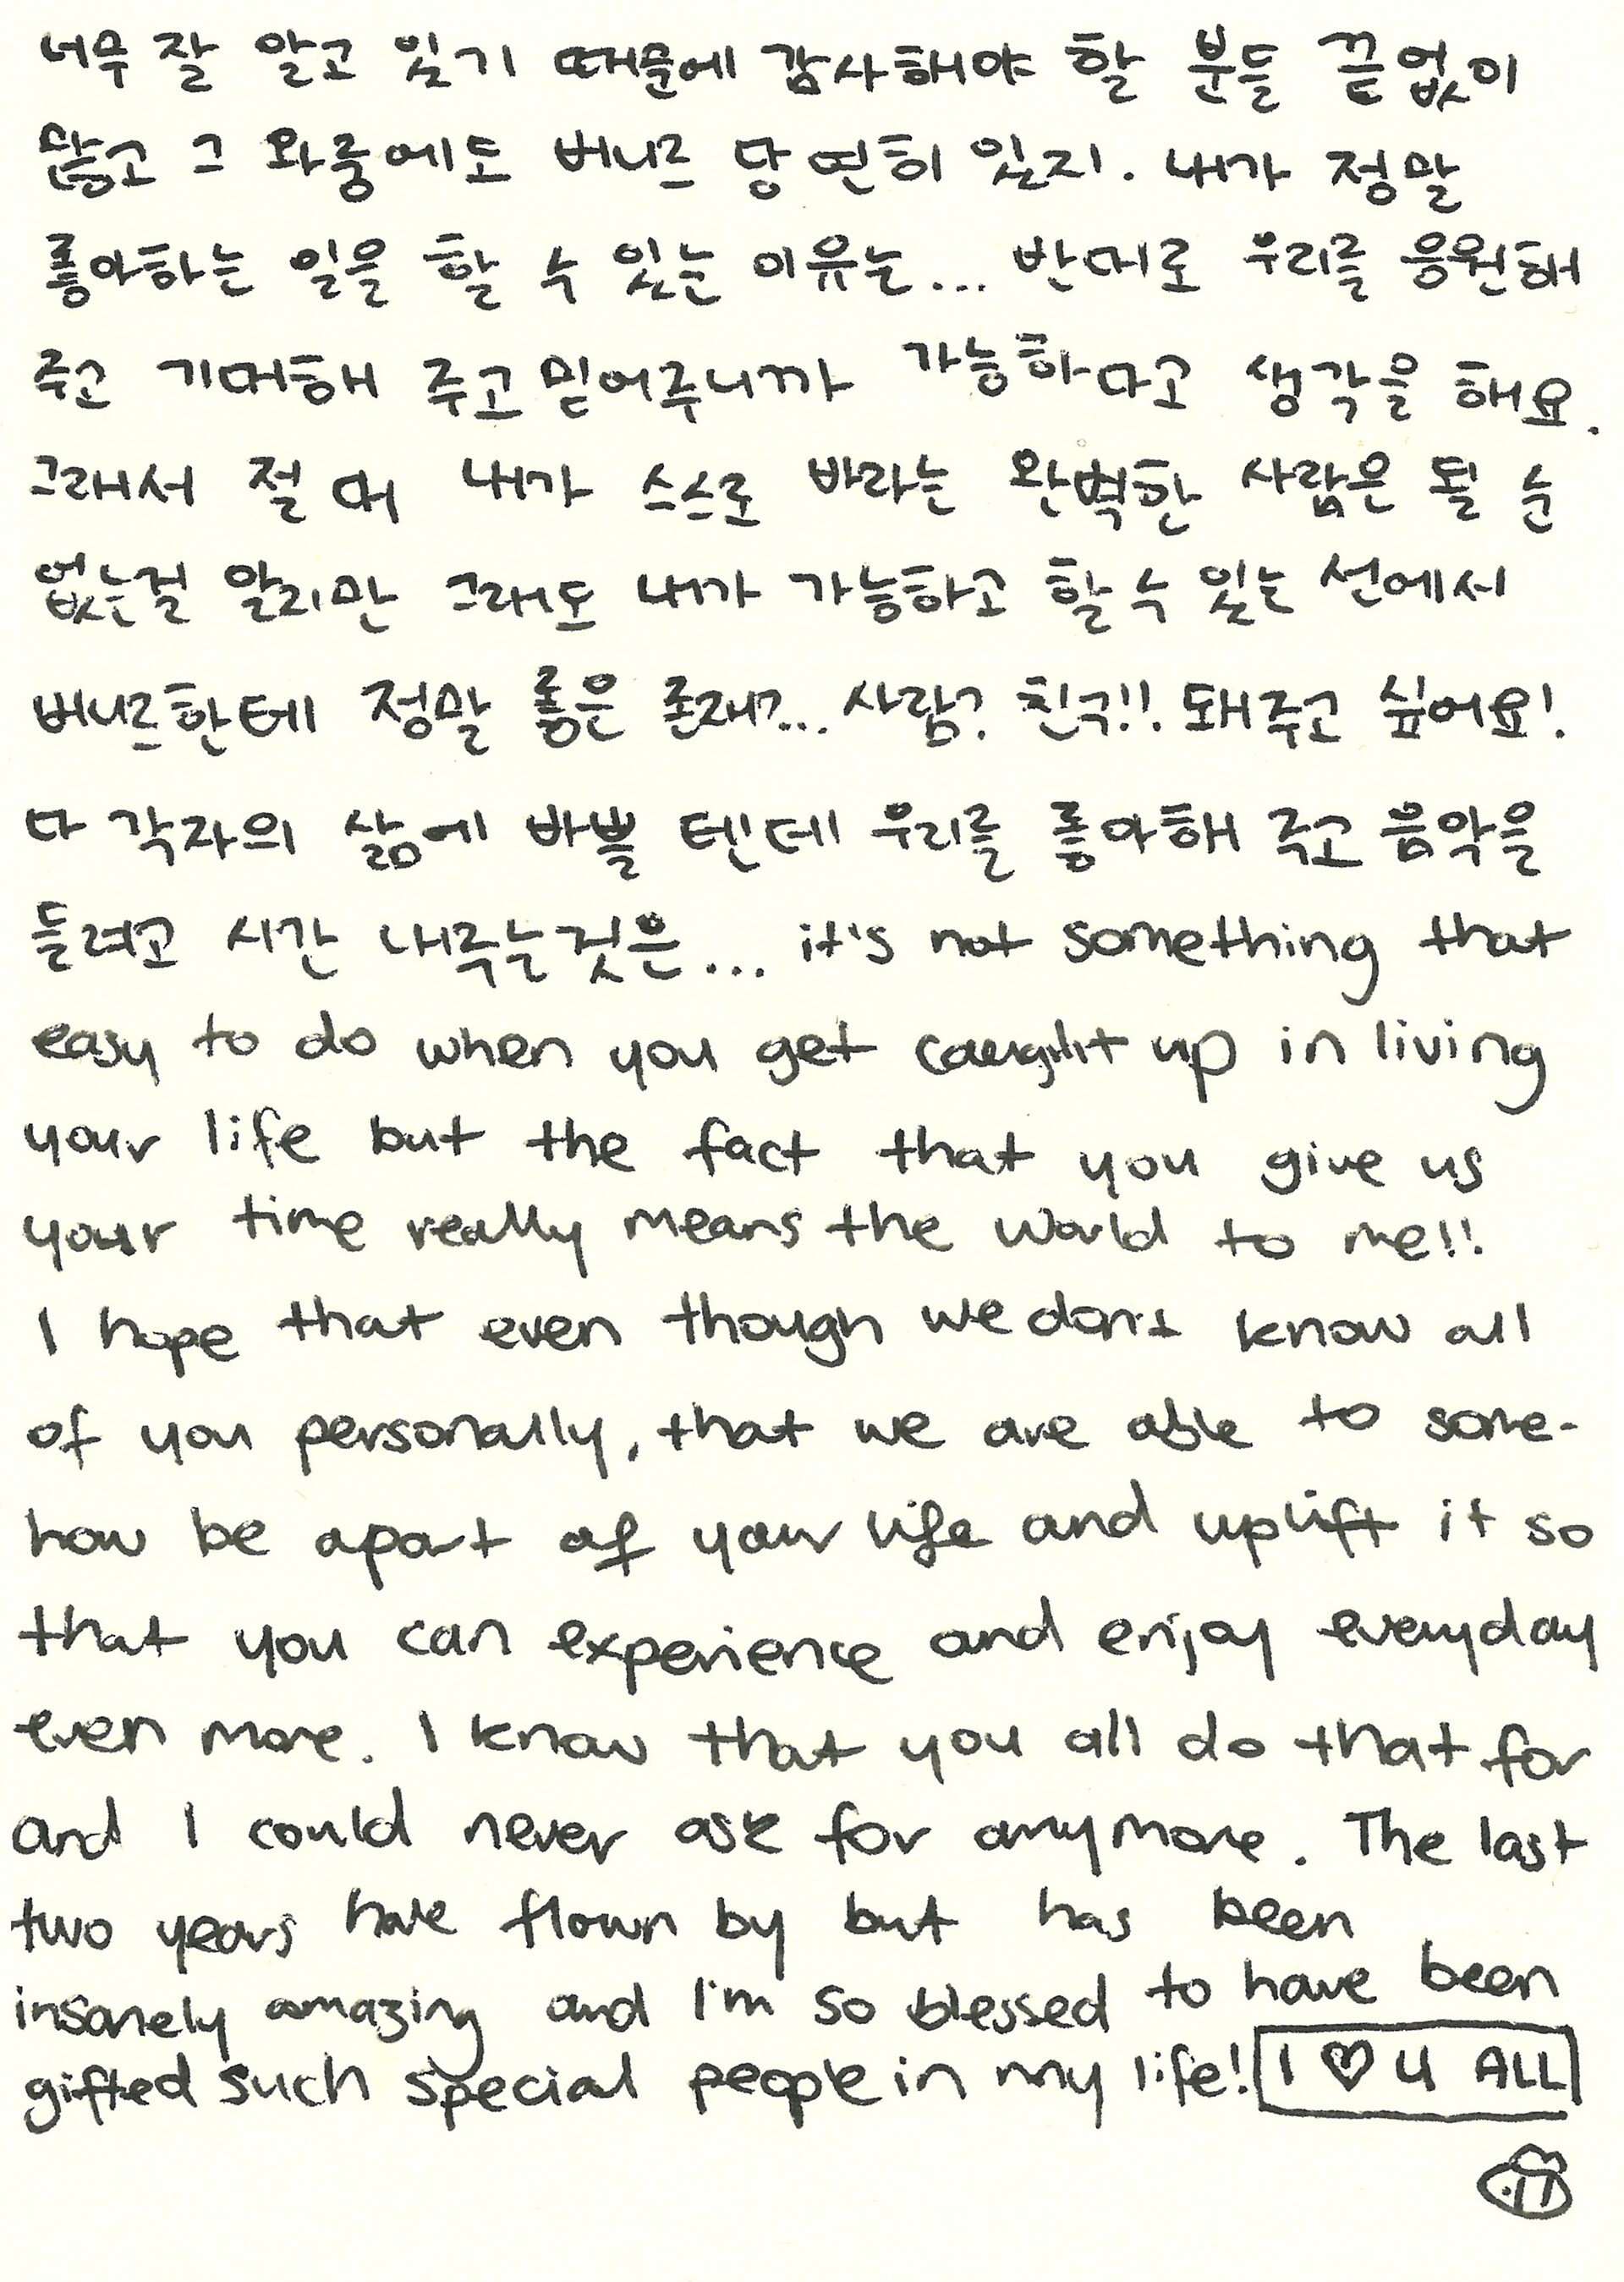 너무 잘 알고 있기 때문에 감사해야 할 분들 끝없이
많고 그 와중에도 버니즈 당연히 있지. 내가 정말
좋아하는 일을 할 수 있는 이유는... 반대로 우리를 응원해
주고 기대해 주고 믿어주니까 가능하다고 생각을 해요.
그래서 절대 내가 스스로 바라는 완벽한 사람은 될 순
없는걸 알지만 그래도 내가 가능하고 할 수 있는 선에서
버니즈한테 정말 좋은 존재?... 사람? 친구!! 돼주고 싶어요!
다 각자의 삶에 바쁠 텐데 우리를 좋아해 주고 음악을
들려고 시간 내주는것은... it's not something that
easy to do when you get caught up in living
your life but the fact that you give us
your time really means the world to me!!
I hope that even though we don't know all
of you personally, that we are able to some-
how be apart of your life and uplift it so
that you can experience and enjoy everyday
even more. I know that you all do that for
and I could never ask for anymore. The last
two years have flown by but has been
insanely amazing and I'm so blessed to have been
gifted such special people in my life! I ♡ U ALL